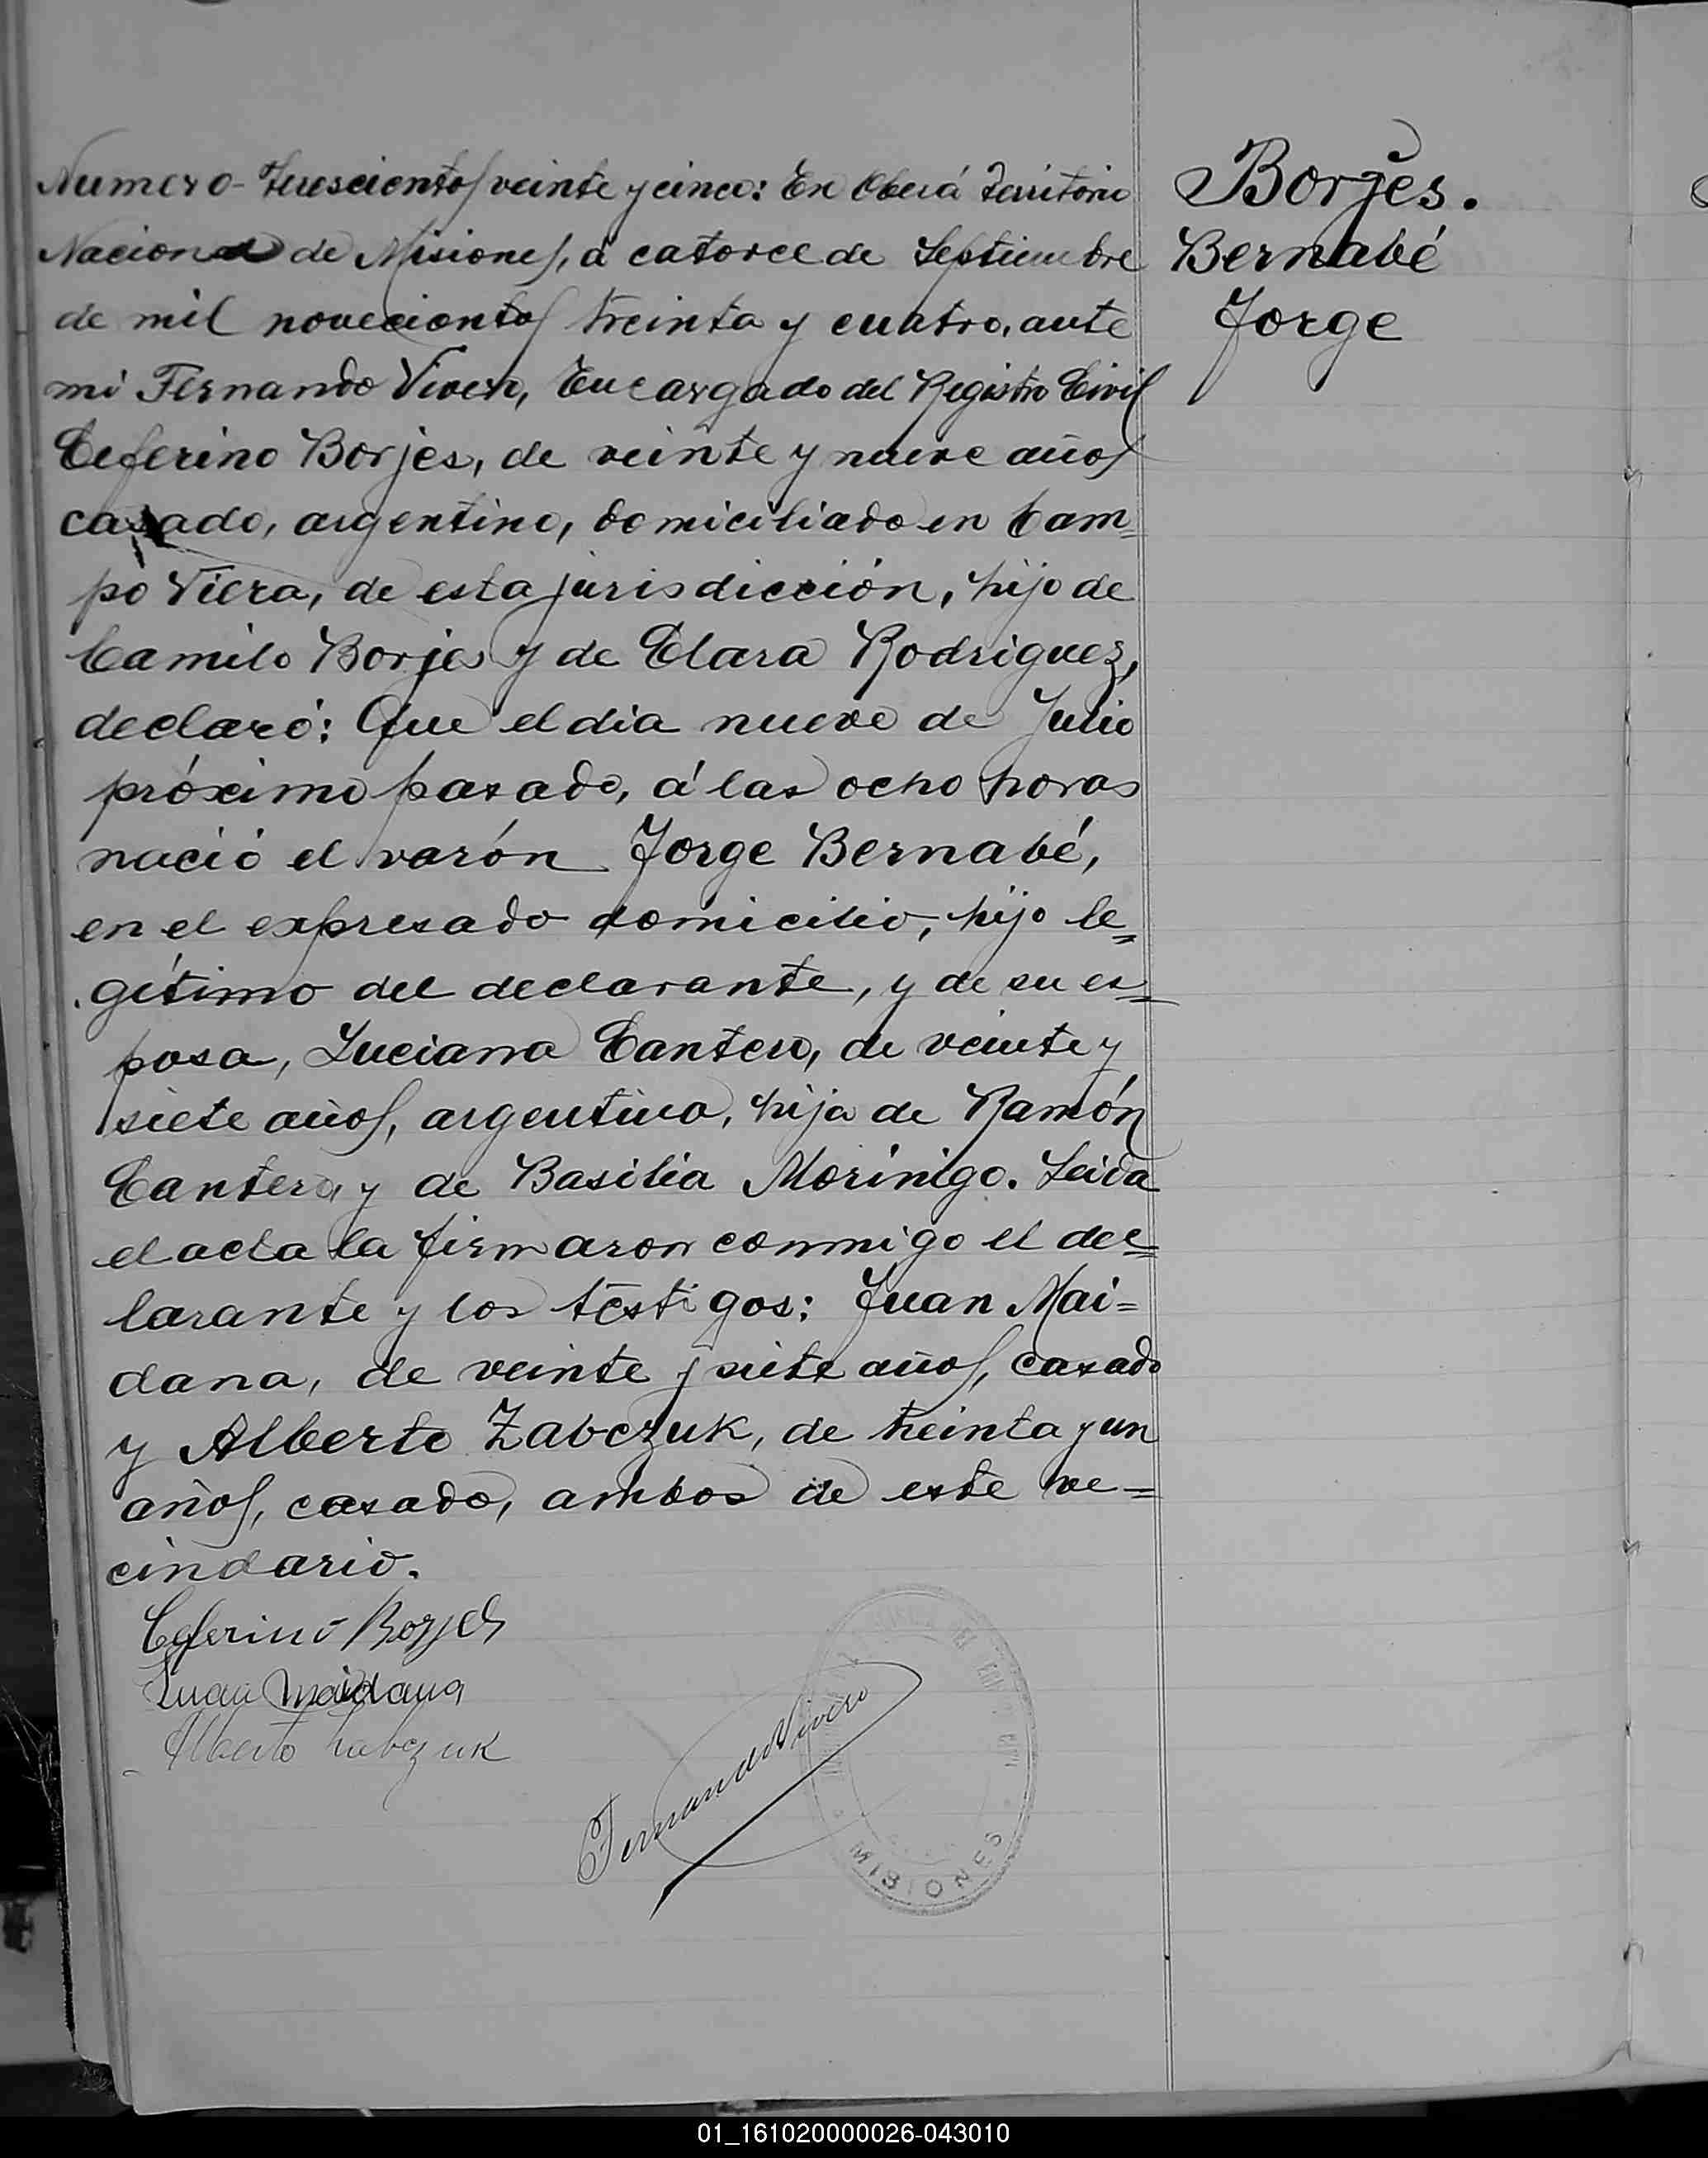 Numero Trescientos veinte y cinco: En Oberá Territorio
Nacional de Misiones, á catorce de Septiembre
de mil novecientos treinta y cuatro, ante
mi Fernando Vivero, Encargado del Registro Civil
Ceferino Borjes, de veinte y nueve años
casado, argentino, domiciliado en Cam=
po Viera, de esta jurisdicción, hijo de
Camilo Borjes y de Clara Rodriguez,
declaró: Que el dia nueve de Julio
próximo pasado, á las ocho horas
nació el varón Jorge Bernabé,
en el expresado domicilio, hijo le=
gítimo del declarante, y de su es=
posa, Luciana Cantero, de veinte y
siete años, argentina, hija de Ramón
Cantero, y de Basilia Morínigo. Leida
el acta la firmaron conmigo el dec=
larante y los testigos: Juan Mai=
dana, de veinte y siete años, casado
y Alberto Zabczuk, de treinta y un
años, casado, ambos de este ve=
cindario.
Borjes.
Bernabé
Jorge
Ceferino Borjes
Juan Maidana
Alberto Zabczuk
Fernando Vivero
MISIONES
01_161020000026-043010